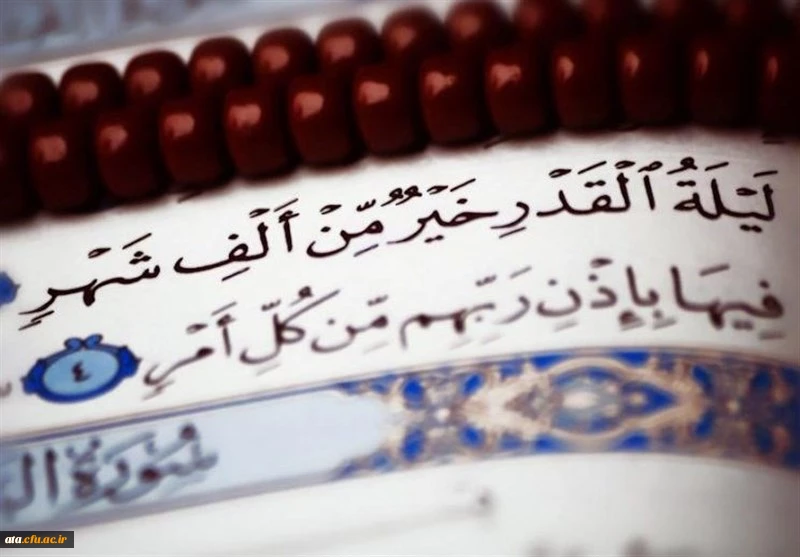 لَيْلَةُ ٱلْقَدْرِ خَيْرٌ مِّنْ أَلْفِ شَهْرٍ
فِيهَا بِإِذْنِ رَبِّهِم مِّن كُلِّ أَمْرٍ ٤
سُورَةُ
ata.cfu.ac.ir